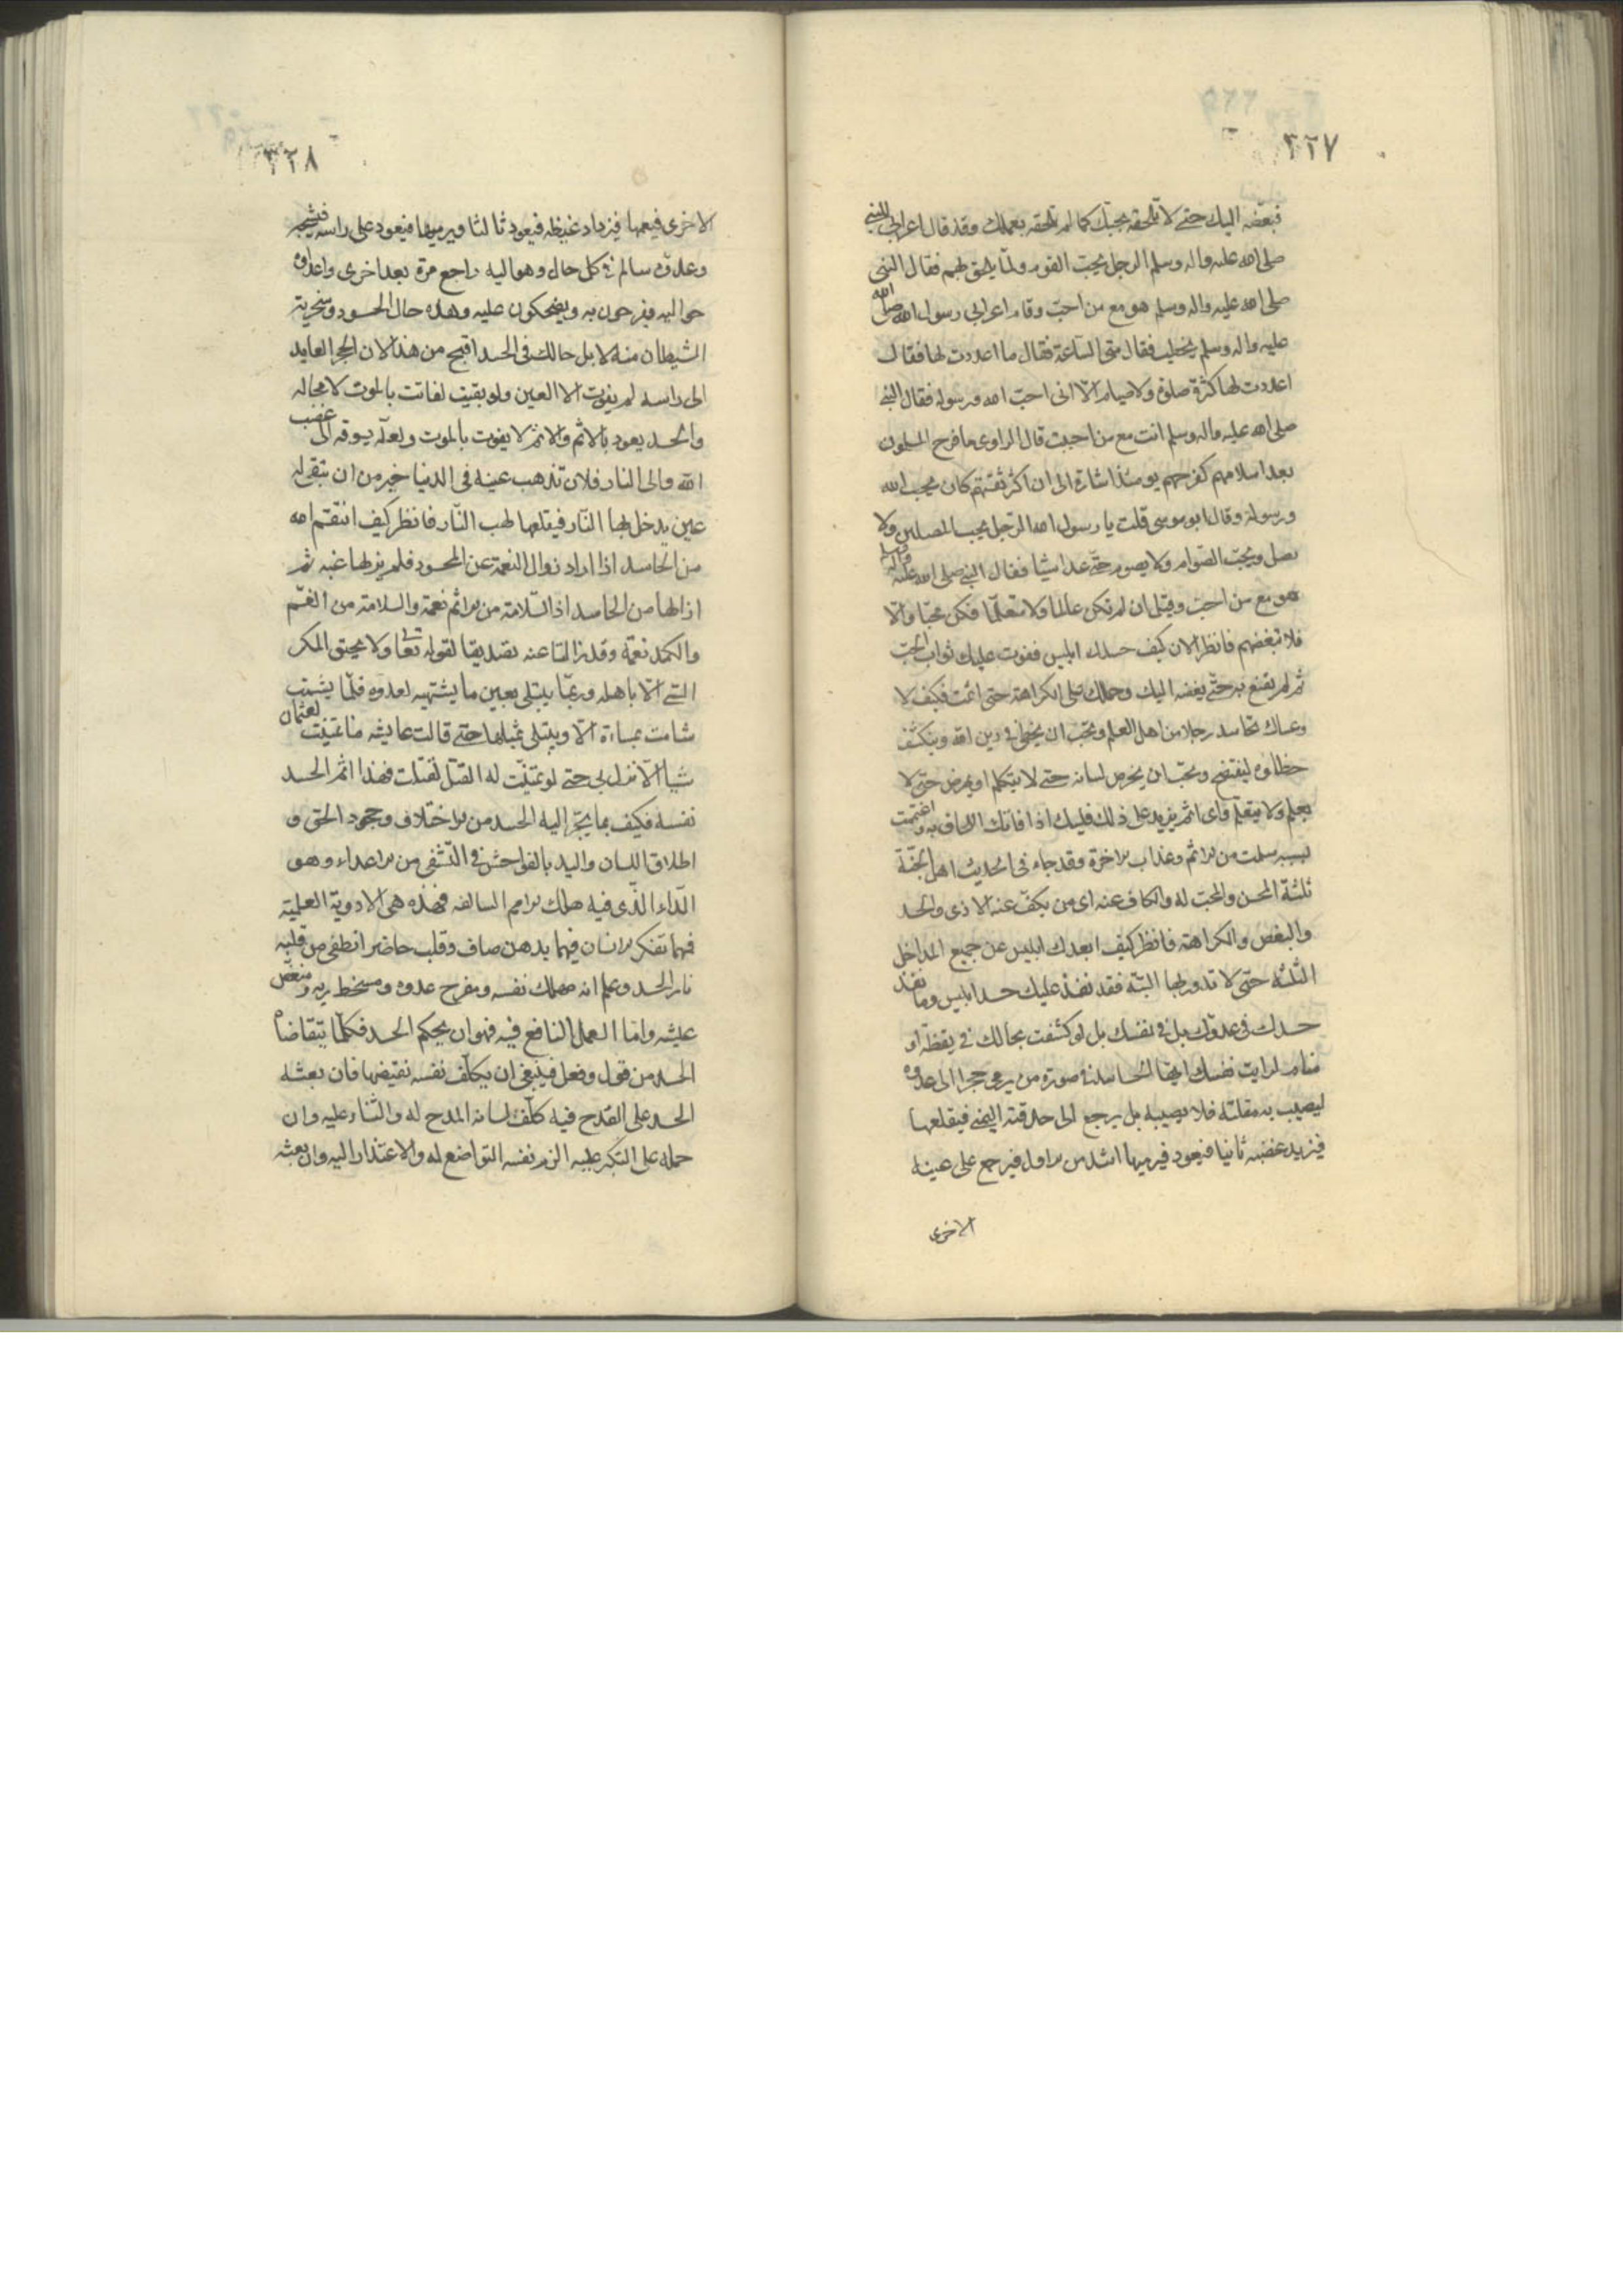 ٣٢٧
فبغضه اليك حتى لا تلحقه بحبك كما لم تلحقه بعملك وقد قال اعرابي للنبي
صلى الله عليه واله وسلم الرجل يحب القوم ولما يلحق بهم فقال النبي
صلى الله عليه واله وسلم هو مع من احب وقام اعرابي رسول الله صلى الله
عليه واله وسلم يخطب فقال متى الساعة فقال ما اعددت لها فقال
اعددت لها كثرة صلوة ولا صيام الا انى احب الله ورسوله فقال النبي
صلى الله عليه واله وسلم انت مع من احببت قال الراوى ما فرح المسلمون
بعد اسلامهم كفرحهم يومئذ اشارة الى ان اكثر ثقتهم كان بحب الله
ورسوله وقال ابو موسى قلت يا رسول الله الرجل يحب المصلين ولا
يصل ويحب الصوام ولا يصوم حتى عد اشيا فقال النبي صلى الله عليه واله وسلم
هو مع من احب وقيل ان لم تكن عالما ولا متعلما فكن محبا والا
فلا تبغضهم فانظر الان كيف حسدك ابليس ففوت عليك ثواب الحب
ثم لم يقنع به حتى بغضه اليك وحملك على الكراهة حتى اثمت فكيف لا
وعساك تحاسد رجلا من اهل العلم وتحب ان يخطئ في دين الله وينكشف
خطاؤه ليفتضح وتحب ان يخرس لسانه حتى لا يتكلم او يمرض حتى لا
يعلم ولا يتعلم واى اثم يزيد على ذلك فليتك اذا فاتك اللحاق به واغتممت
بسببه سلمت من الاثم وعذاب الاخرة وقد جاء فى الحديث اهل الجنة
ثلثة المحسن والمحب له والكاف عنه اى من يكف عنه الاذى والحسد
والبغض والكراهة فانظر كيف ابعدك ابليس عن جميع المداخل
الثلثة حتى لا تدور بها البتة فقد نفذ عليك حسد ابليس وما نفذ
حسدك فى عدوك بل فى نفسك بل لو كشفت بحالك فى يقظة او
منام لرايت نفسك ايها الحاسد فى صورة من يرمى حجرا الى عدوه
ليصيب به مقلته فلا يصيبه بل يرجع الى حدقته اليمنى فيقلعها
فيزيد غضبه ثانيا فيعود فيرميها اشد من الاول فيرجع على عينه
الاخرى
٣٢٨
الاخرى فيعمها فيزداد غيظه فيعود ثالثا ويرميها فيعود على راسه فيشجه
وعدوه سالم فى كل حال وهو اليه راجع مرة بعد اخرى واعداؤه
حواليه يفرحون به ويضحكون عليه وهذه حال الحسود وسخرية
الشيطان منه لا بل حالك فى الحسد اقبح من هذا لان الحجر العايد
الى راسه لم يفوت الا العين ولو بقيت لفاتت بالموت لا محالة
والحسد يعود بالاثم والاثم لا يفوت بالموت ولعله يسوقه الى غضب
الله والى النار فلان تذهب عينه فى الدنيا خير من ان تبقى له
عين يدخل بها النار فيقلعها لهب النار فانظر كيف انتقم الله
من الحاسد اذا اراد زوال النعمة عن المحسود فلم يزلها عنه ثم
ازالها من الحاسد اذ السلامة من الاثم نعمة والسلامة من الغم
والكمد نعمة وقد زالتا عنه تصديقا لقوله تعا ولا يحيق المكر
السئ الا باهله وربما يبتلى بعين ما يشتهيه لعدوه فلما يشمت
شامت بمساءة الا ويبتلى بمثلها حتى قالت عايشه ما تمنيت لعثمان
شيا الا نزل بى حتى لو تمنيت له القتل لقتلت فهذا اثم الحسد
نفسه فكيف بما يجر اليه الحسد من الاختلاف وجحود الحق و
اطلاق اللسان واليد بالفواحش فى التشفى من الاعداء وهو
الداء الذى فيه هلك الامم السالفه فهذه هى الادوية العلمية
فهما تفكر الانسان فيها بذهن صاف وقلب حاضر انطفى من قلبه
نار الحسد وعلم انه مهلك نفسه ومفرح عدوه ومسخط ربه ومنغص
عيشه واما العمل النافع فيه فهو ان يحكم الحسد فكلما يتقاضاه
الحسد من قول وفعل فينبغى ان يكلف نفسه نقيضها فان بعثه
الحسد على القدح فيه كلف لسانه المدح له والثناء عليه وان
حمله على التكبر عليه الزم نفسه التواضع له والاعتذار اليه وان بعثه